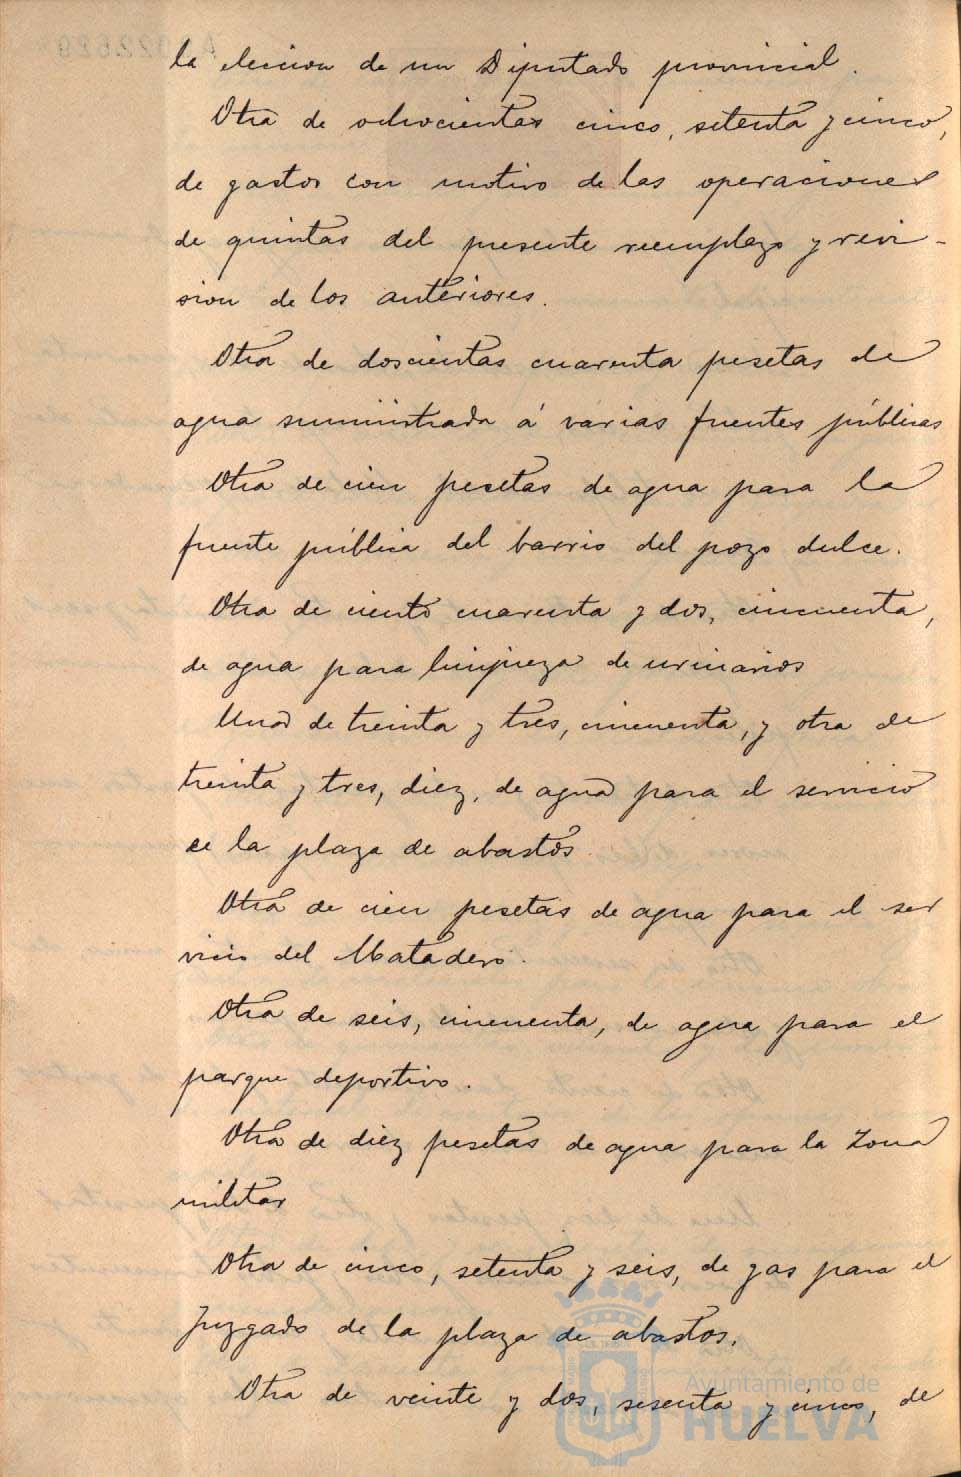 la eleccion de un Diputado provincial.
Otra de ochocientas cinco, setenta y cinco,
de gastos con motivo de las operaciones
de quintas del presente reemplazo y revi-
sion de los anteriores.
Otra de doscientas cuarenta pesetas de
agua suministrada á varias fuentes públicas
Otra de cien pesetas de agua para la
fuente pública del barrio del pozo dulce.
Otra de ciento cuarenta y dos, cincuenta,
de agua para limpieza de urinarios
Una de treinta y tres, cincuenta, y otra de
treinta y tres, diez, de agua para el servicio
de la plaza de abastos
Otra de cien pesetas de agua para el ser
vicio del Matadero.
Otra de seis, cincuenta, de agua para el
parque deportivo.
Otra de diez pesetas de agua para la Zona
militar
Otra de cinco, setenta y seis, de gas para el
Juzgado de la plaza de abastos.
Otra de veinte y dos, sesenta y cinco, de
Ayuntamiento de
HUELVA